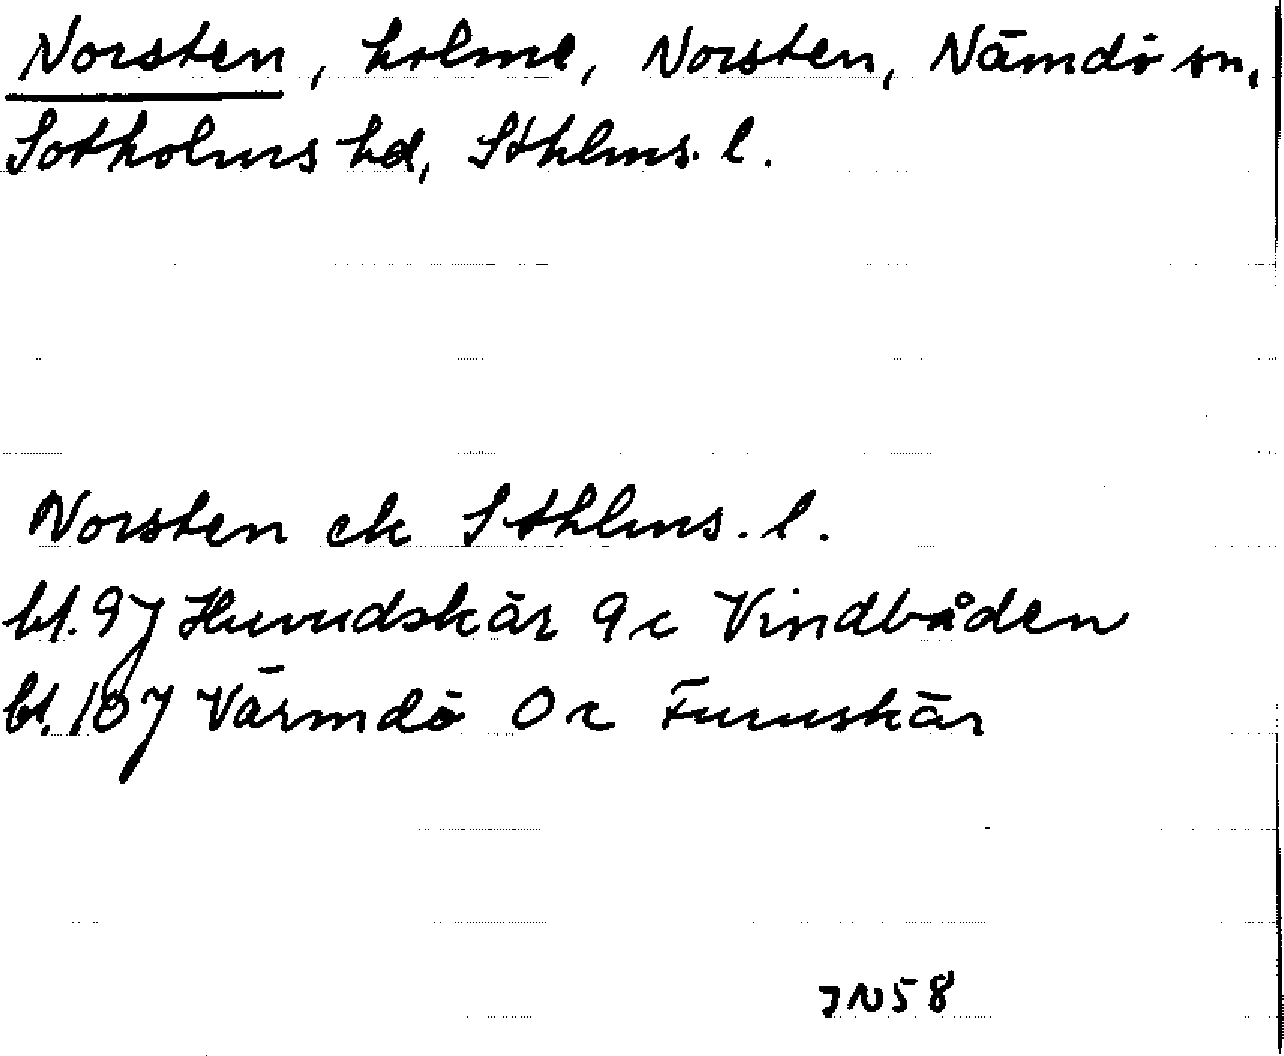 Norsten, holme, Norsten, Nämdö sn,
Sotholms hd, Sthlms. l.
Norsten ek Sthlms. l.
bl. 97 Huvudskär 9c Vindbåden
bl. 107 Värmdö 0c Furuskär
JN58